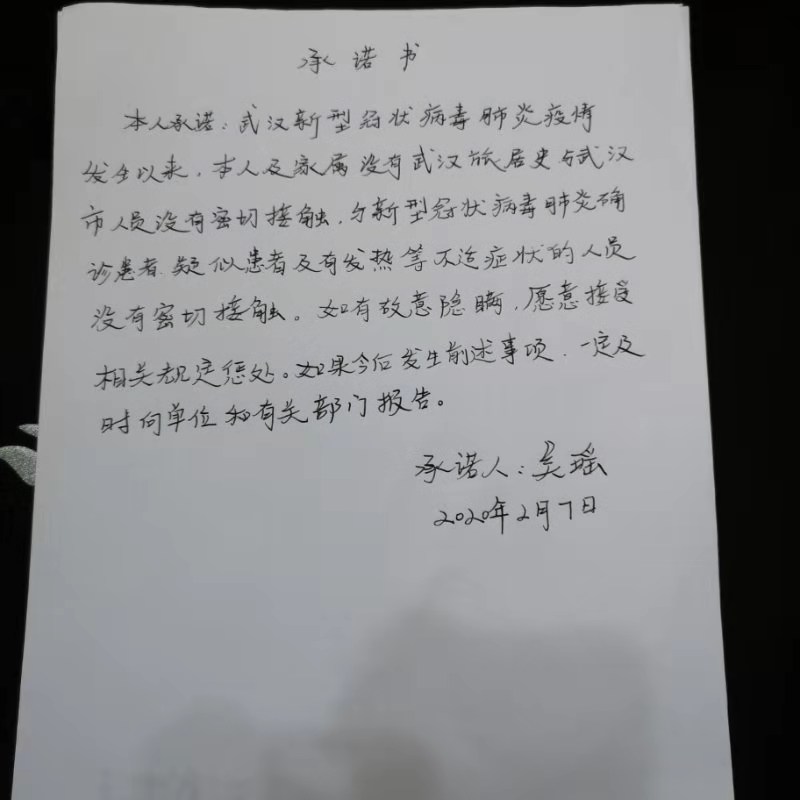 承诺书
本人承诺：武汉新型冠状病毒肺炎疫情
发生以来，本人及家属没有武汉旅居史与武汉
市人员没有密切接触，与新型冠状病毒肺炎确
诊患者、疑似患者及有发热等不适症状的人员
没有密切接触。如有故意隐瞒，愿意接受
相关规定惩处。如果今后发生前述事项，一定及
时向单位和有关部门报告。
承诺人：吴瑶
2020年2月7日